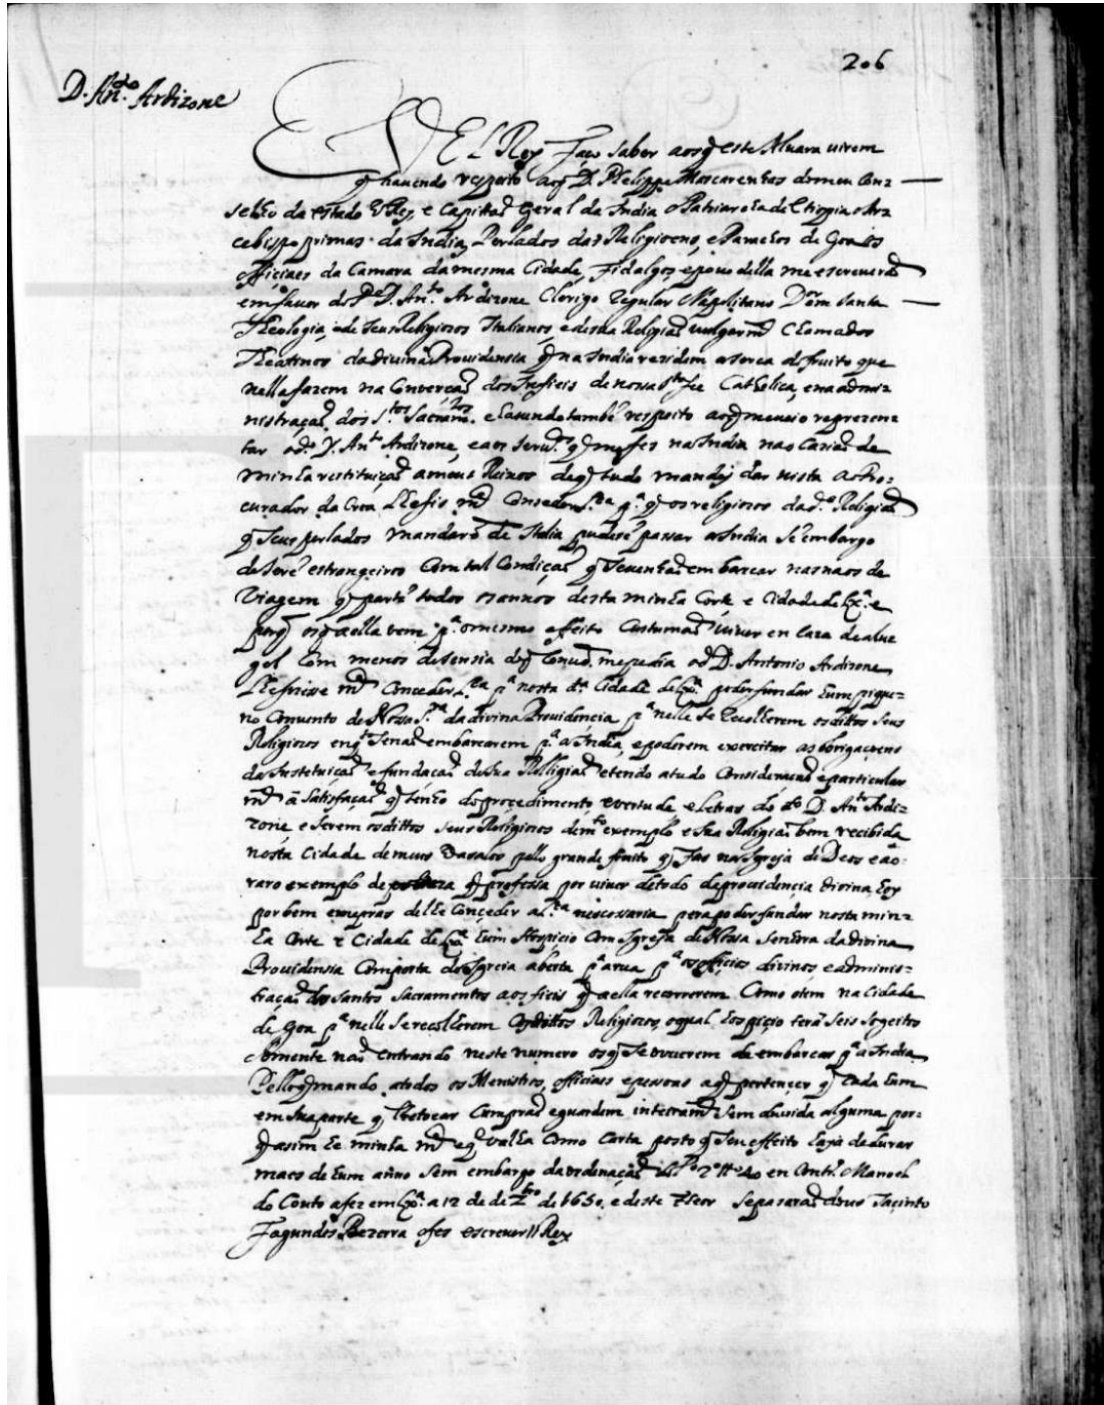 206
D. An.to Ardizone
EU ElRey Faço saber aos q̃ este Aluara uirem
q̃ hauendo respeito aoq̃ D. Phelippe Mascarenhas do meu Con=
selho da estado V Rey, e Capittaõ geral da India o Patriarcha de Ethiopia o Ar=
cebispo primas da India, Perlados das Religioens, e Parochos de Goa os
officiaes da Camara da mesma Cidade, Fidalgos, e pouo della me escreueraõ
em fauor do P.e D. An.to Ardizone Clerigo regular Napolitano D.or em santa
Theologia, e de seus Religiosos Italianos, e de sua Religiaõ uulgarm.te Chamados
Theatinos da diuina Prouidensia q̃ na India rezidem aserca do fruito que
nella fazem na Converçaõ dos Infieis de nossa s.ta fee Catholica, e na admi=
nistraçaõ dos s.tos Sacram.tos e hauendo tambẽ respeito aoq̃ me ueio reprezen=
tar o d.o P. An.to Ardizone, e aos seru.os q̃ me fes na India na o Cariaõ de
minha restituiçaõ a meus Reinos de q̃ tudo mandej dar uista ao Pro=
curador da Croa Lhe fis m.ce Conceder l.ca p.a q̃ os religiosos da d.a Religiaõ
q̃ seus perlados mandarẽ de Italia pudesẽ passar a India sẽ embargo
de serẽ estrangeiros Com tal Condiçaõ q̃ se uenhaõ embarcar nas naos de
Viagem q̃ partẽ todos os annos desta minha Corte e Cidade de Lx.a e
porq̃ os q̃ a ella vem p.a o mesmo effeito Custumaõ uiuer en caza de alu
gel Com menos desensia do q̃ Conuẽ. me pedia o d.o D. Antonio Ardizone
Lhe fizesse m.ce Conceder l.ca p.a nesta d.a Cidade de Lx.a poder fundar hum pique=
no Conuento de Nossa S.ra da diuina Prouidencia p.a nelle se recolherem os dittos seus
Religiosos enq.to se naõ embarcarem p.a a India, e poderem exercitar as obrigaçoens
da Instetuiçaõ e fundaçaõ de sua Relligiaõ e tendo a tudo Consideraçaõ e particular
m.te a satisfaçaõ q̃ tenho do procedimento, e vertude e letras do d.o D. An.to Ardi=
zone, e serem os dittos seus Religiosos de m.to exemplo e sua Religiaõ bem recibida
nesta Cidade de meus Vasalos pello grande fruito q̃ fas na Igreja de Deos e ao
raro exemplo de pobreza q̃ professa por uiuer de todo de prouidencia diuina Ey
por bem e me pras de lhe Conçeder a l.ca nescessaria pera poder fundar nesta min=
ha Corte e Cidade de Lx.a hum Hospicio Com Igreja de Nossa Senhora da diuina
Prouidensia Com porta da Igreia aberta p.a a rua p.a os officios diuinos e adminis=
traçaõ dos santos Sacramentos aos fieis q̃ a ella recorrerem. Como o tem na Cidade
de Goa p.a nelle se recolherem os dittos Religiosos, o qual hospicio terá seis sogeitos
sómente naõ entrando neste numero os q̃ se ouuerem de embarcar p.a a India
Pello q̃ mando atodos os Menistros, officiaes e pesoas a q̃ pertençer q̃ Cada hum
em sua parte q̃ lhe tocar Cumpraõ e guardem inteiram.te sem duuida alguma por=
q̃ asim he minha m.ce e q̃ valha Como Carta posto q̃ seu effeito haja de durar
mais de hum anno sem embargo da ordenaçaõ do L.o 2.o tt.o 40 en Contr.o Manoel
do Couto a fez em Lx.a a 12 de dez.bro de 1650. e deste theor se pasaraõ dous Jaçinto
Fagundes Bezerra o fes escreuer // Rey